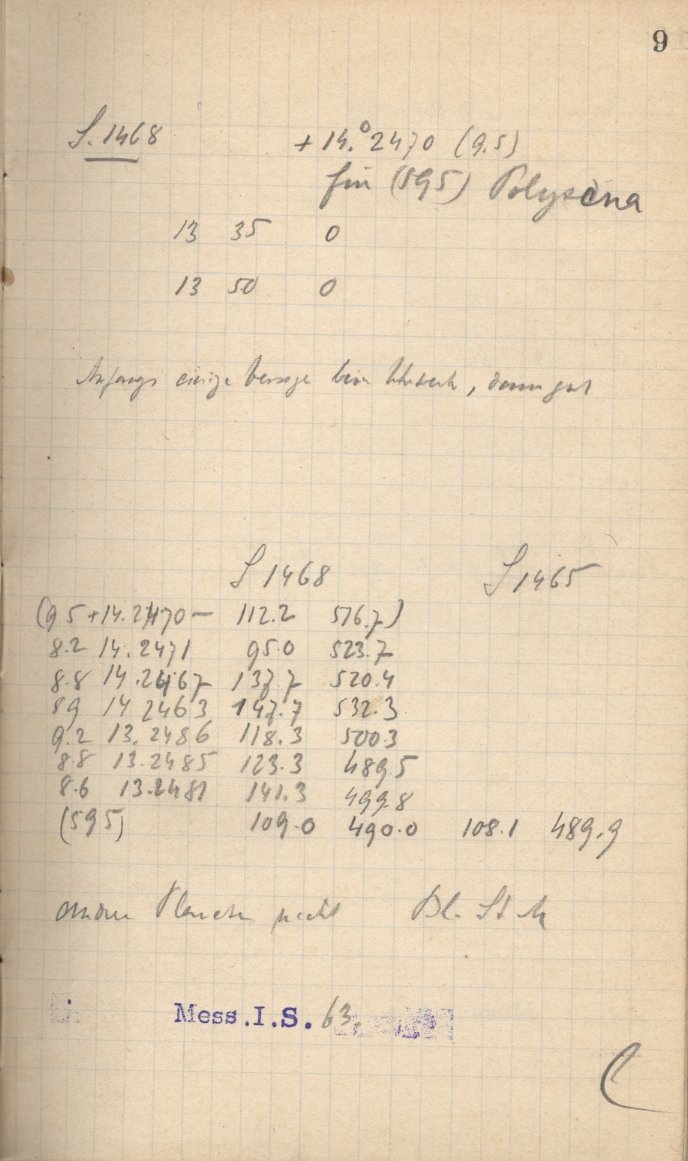 9
S. 1468 +14.°2470 (9.5)
für (595) Polyxena
13 35 0
13 50 0
Anfangs einige, dann gut
S 1468 S 1465
(9.5 +14.2470 — 112.2 516.7)
8.2 14.2471 95.0 523.7
8.8 14.2467 137.7 520.4
8.9 14.2463 147.7 532.3
9.2 13.2486 118.3 500.3
8.8 13.2485 123.3 489.5
8.6 13.2481 141.3 499.8
(595) 109.0 490.0 108.1 489.9
andere Planeten nicht
Mess.I.S. 63.